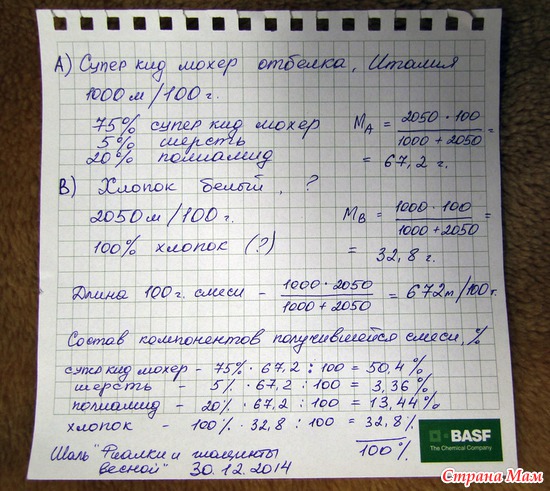 А) Супер кид мохер отбелка, Италия
1000 м/100 г.
75% супер кид мохер
5% шерсть
20% полиамид
M_A = 2050 · 100 / 1000 + 2050 =
= 67,2 г.
В) Хлопок белый, ?
2050 м/100 г.
100% хлопок (?)
M_B = 1000 · 100 / 1000 + 2050 =
= 32,8 г.
Длина 100 г. смеси - 1000 · 2050 / 1000 + 2050 = 672 м/100 г.
Состав компонентов получившейся смеси, %
супер кид мохер - 75% · 67,2 : 100 = 50,4 %
шерсть - 5% · 67,2 : 100 = 3,36 %
полиамид - 20% · 67,2 : 100 = 13,44 %
хлопок - 100% · 32,8 : 100 = 32,8 %
100 %
Шаль "Фиалки и гиацинты
весной" 30.12.2014
BASF
The Chemical Company
Страна Мам